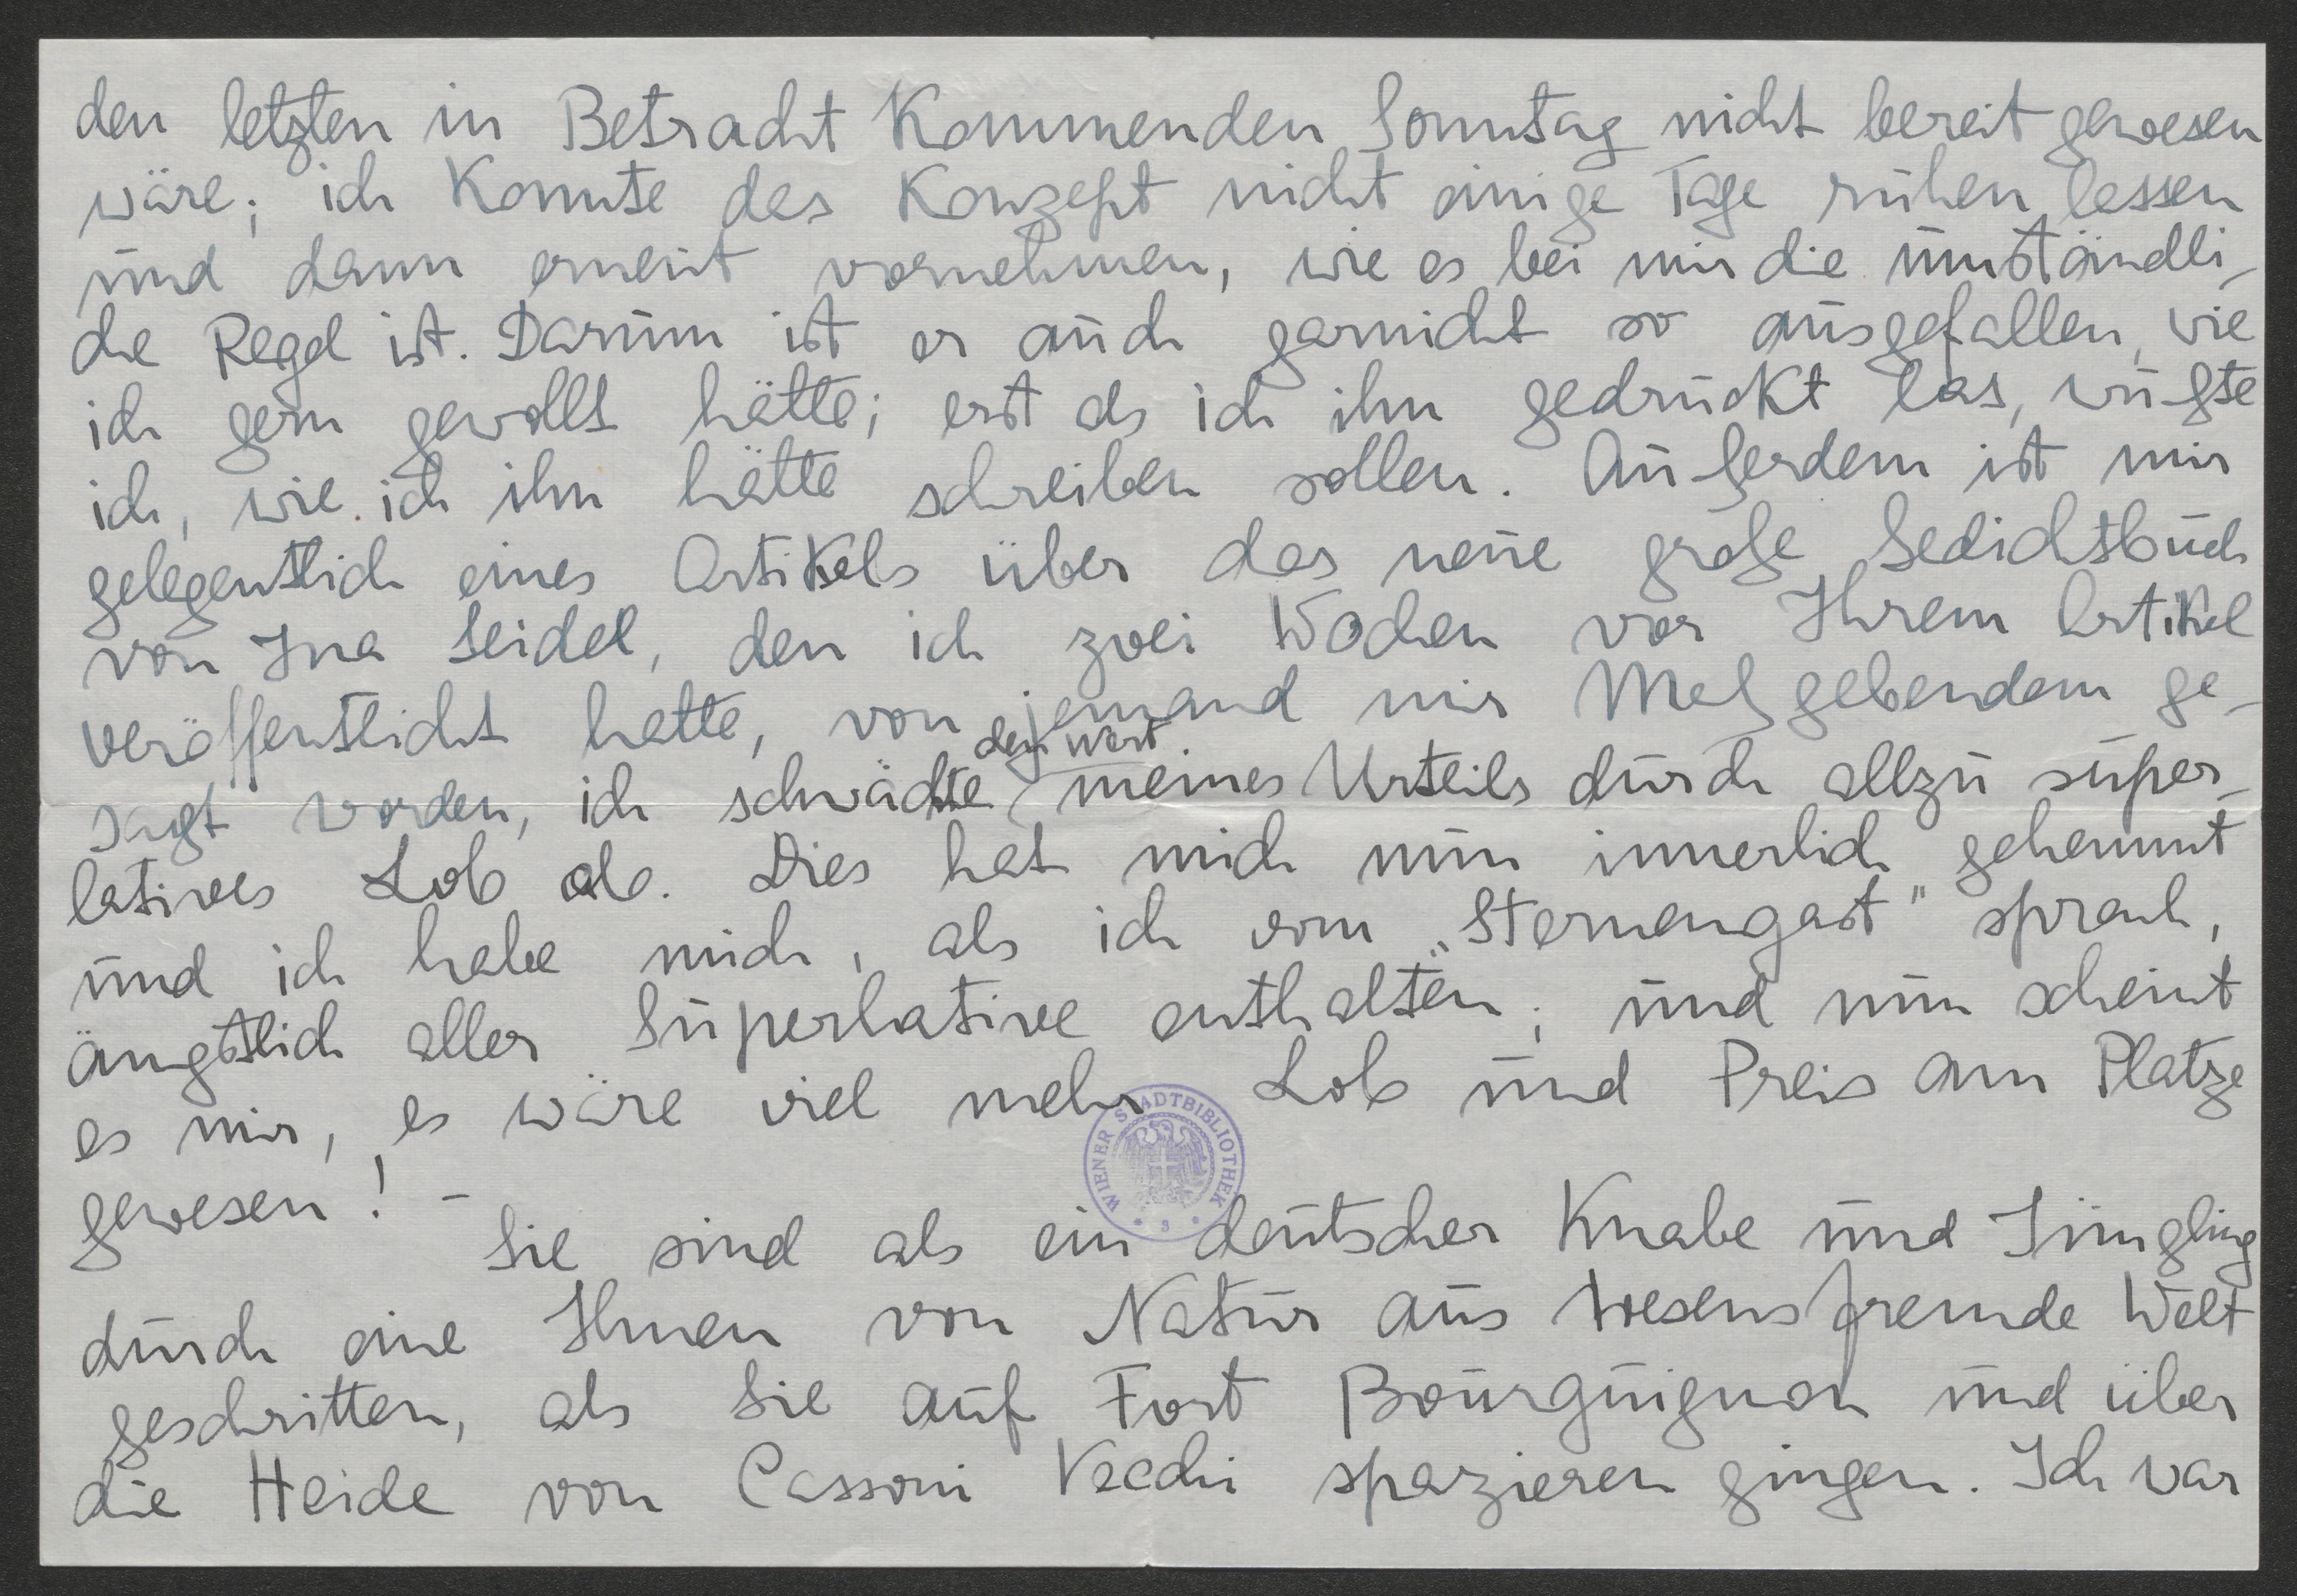 den letzten in Betracht Kommenden Sonntag nicht bereit gewesen
wäre; ich Konnte das Konzept nicht einige Tage ruhen lassen
und dann erneut vornehmen, wie es bei mir die umständli-
che Regel ist. Darum ist er auch garnicht so ausgefallen, wie
ich gern gewollt hätte; erst als ich ihn gedruckt las, wußte
ich, wie ich ihn hätte schreiben sollen. Außerdem ist mir
gelegentlich eines Artikels über das neue große Gedichtbuch
von Ina Seidel, den ich zwei Wochen vor Ihrem Artikel
veröffentlicht hatte, von jemand mir Maßgebendem ge-
sagt worden, ich schwächte den Wert meines Urteils durch allzu super-
latives Lob ab. Dies hat mich nun innerlich gehemmt
und ich habe mich, als ich vom „Sternengast" sprach,
ängstlich aller Superlative enthalten; und nun scheint
es mir, es wäre viel mehr Lob und Preis am Platze
gewesen! –
Sie sind als ein deutscher Knabe und Jüngling
durch eine Ihnen von Natur aus wesensfremde Welt
geschritten, als Sie auf Fort Bourguignon und über
die Heide von Cassoni Vecchi spazieren gingen. Ich war
WIENER STADTBIBLIOTHEK
* 3 *